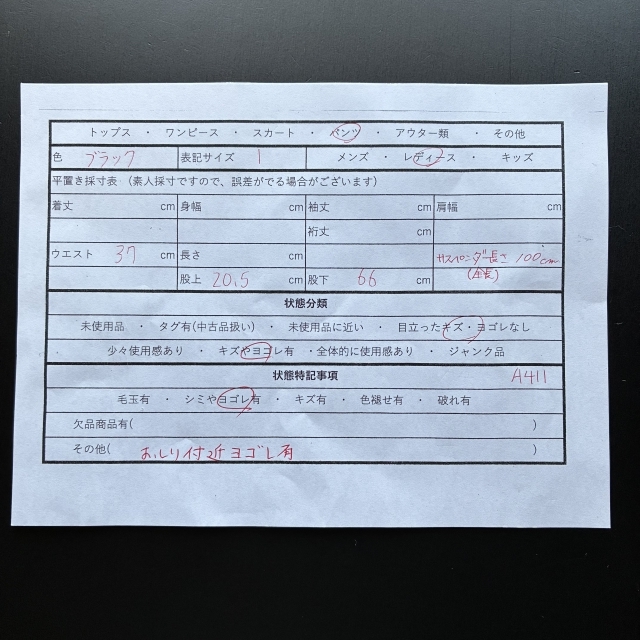 トップス ・ ワンピース ・ スカート ・ パンツ ・ アウター類 ・ その他
色 ブラック 表記サイズ 1 メンズ ・ レディース ・ キッズ
平置き採寸表 (素人採寸ですので、誤差がでる場合がございます)
着丈 cm 身幅 cm 袖丈 cm 肩幅 cm
裄丈 cm
ウエスト 37 cm 長さ cm サスペンダー長さ 100cm
股上 20.5 cm 股下 66 cm (全長)
状態分類
未使用品 ・ タグ有(中古品扱い) ・ 未使用品に近い ・ 目立ったキズ・ヨゴレなし
・ 少々使用感あり ・ キズやヨゴレ有 ・全体的に使用感あり ・ ジャンク品
状態特記事項 A411
毛玉有 ・ シミやヨゴレ有 ・ キズ有 ・ 色褪せ有 ・ 破れ有
欠品商品有( )
その他( おしり付近ヨゴレ有 )